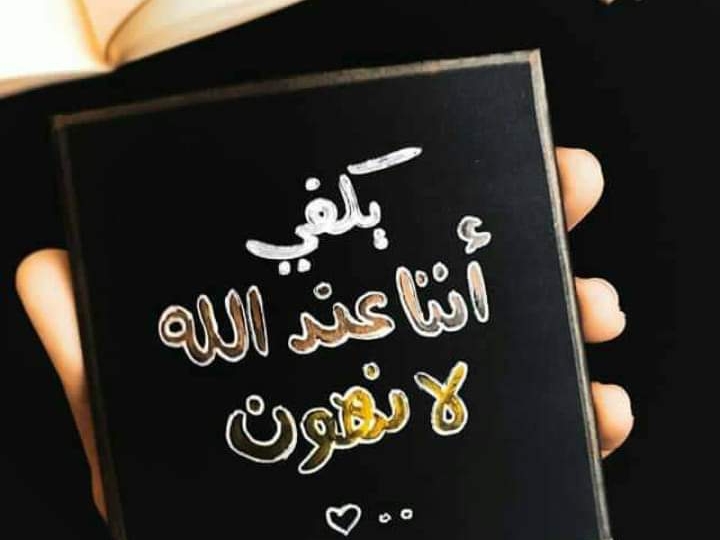 يكفي
أننا عند الله
لا نهون
♡..